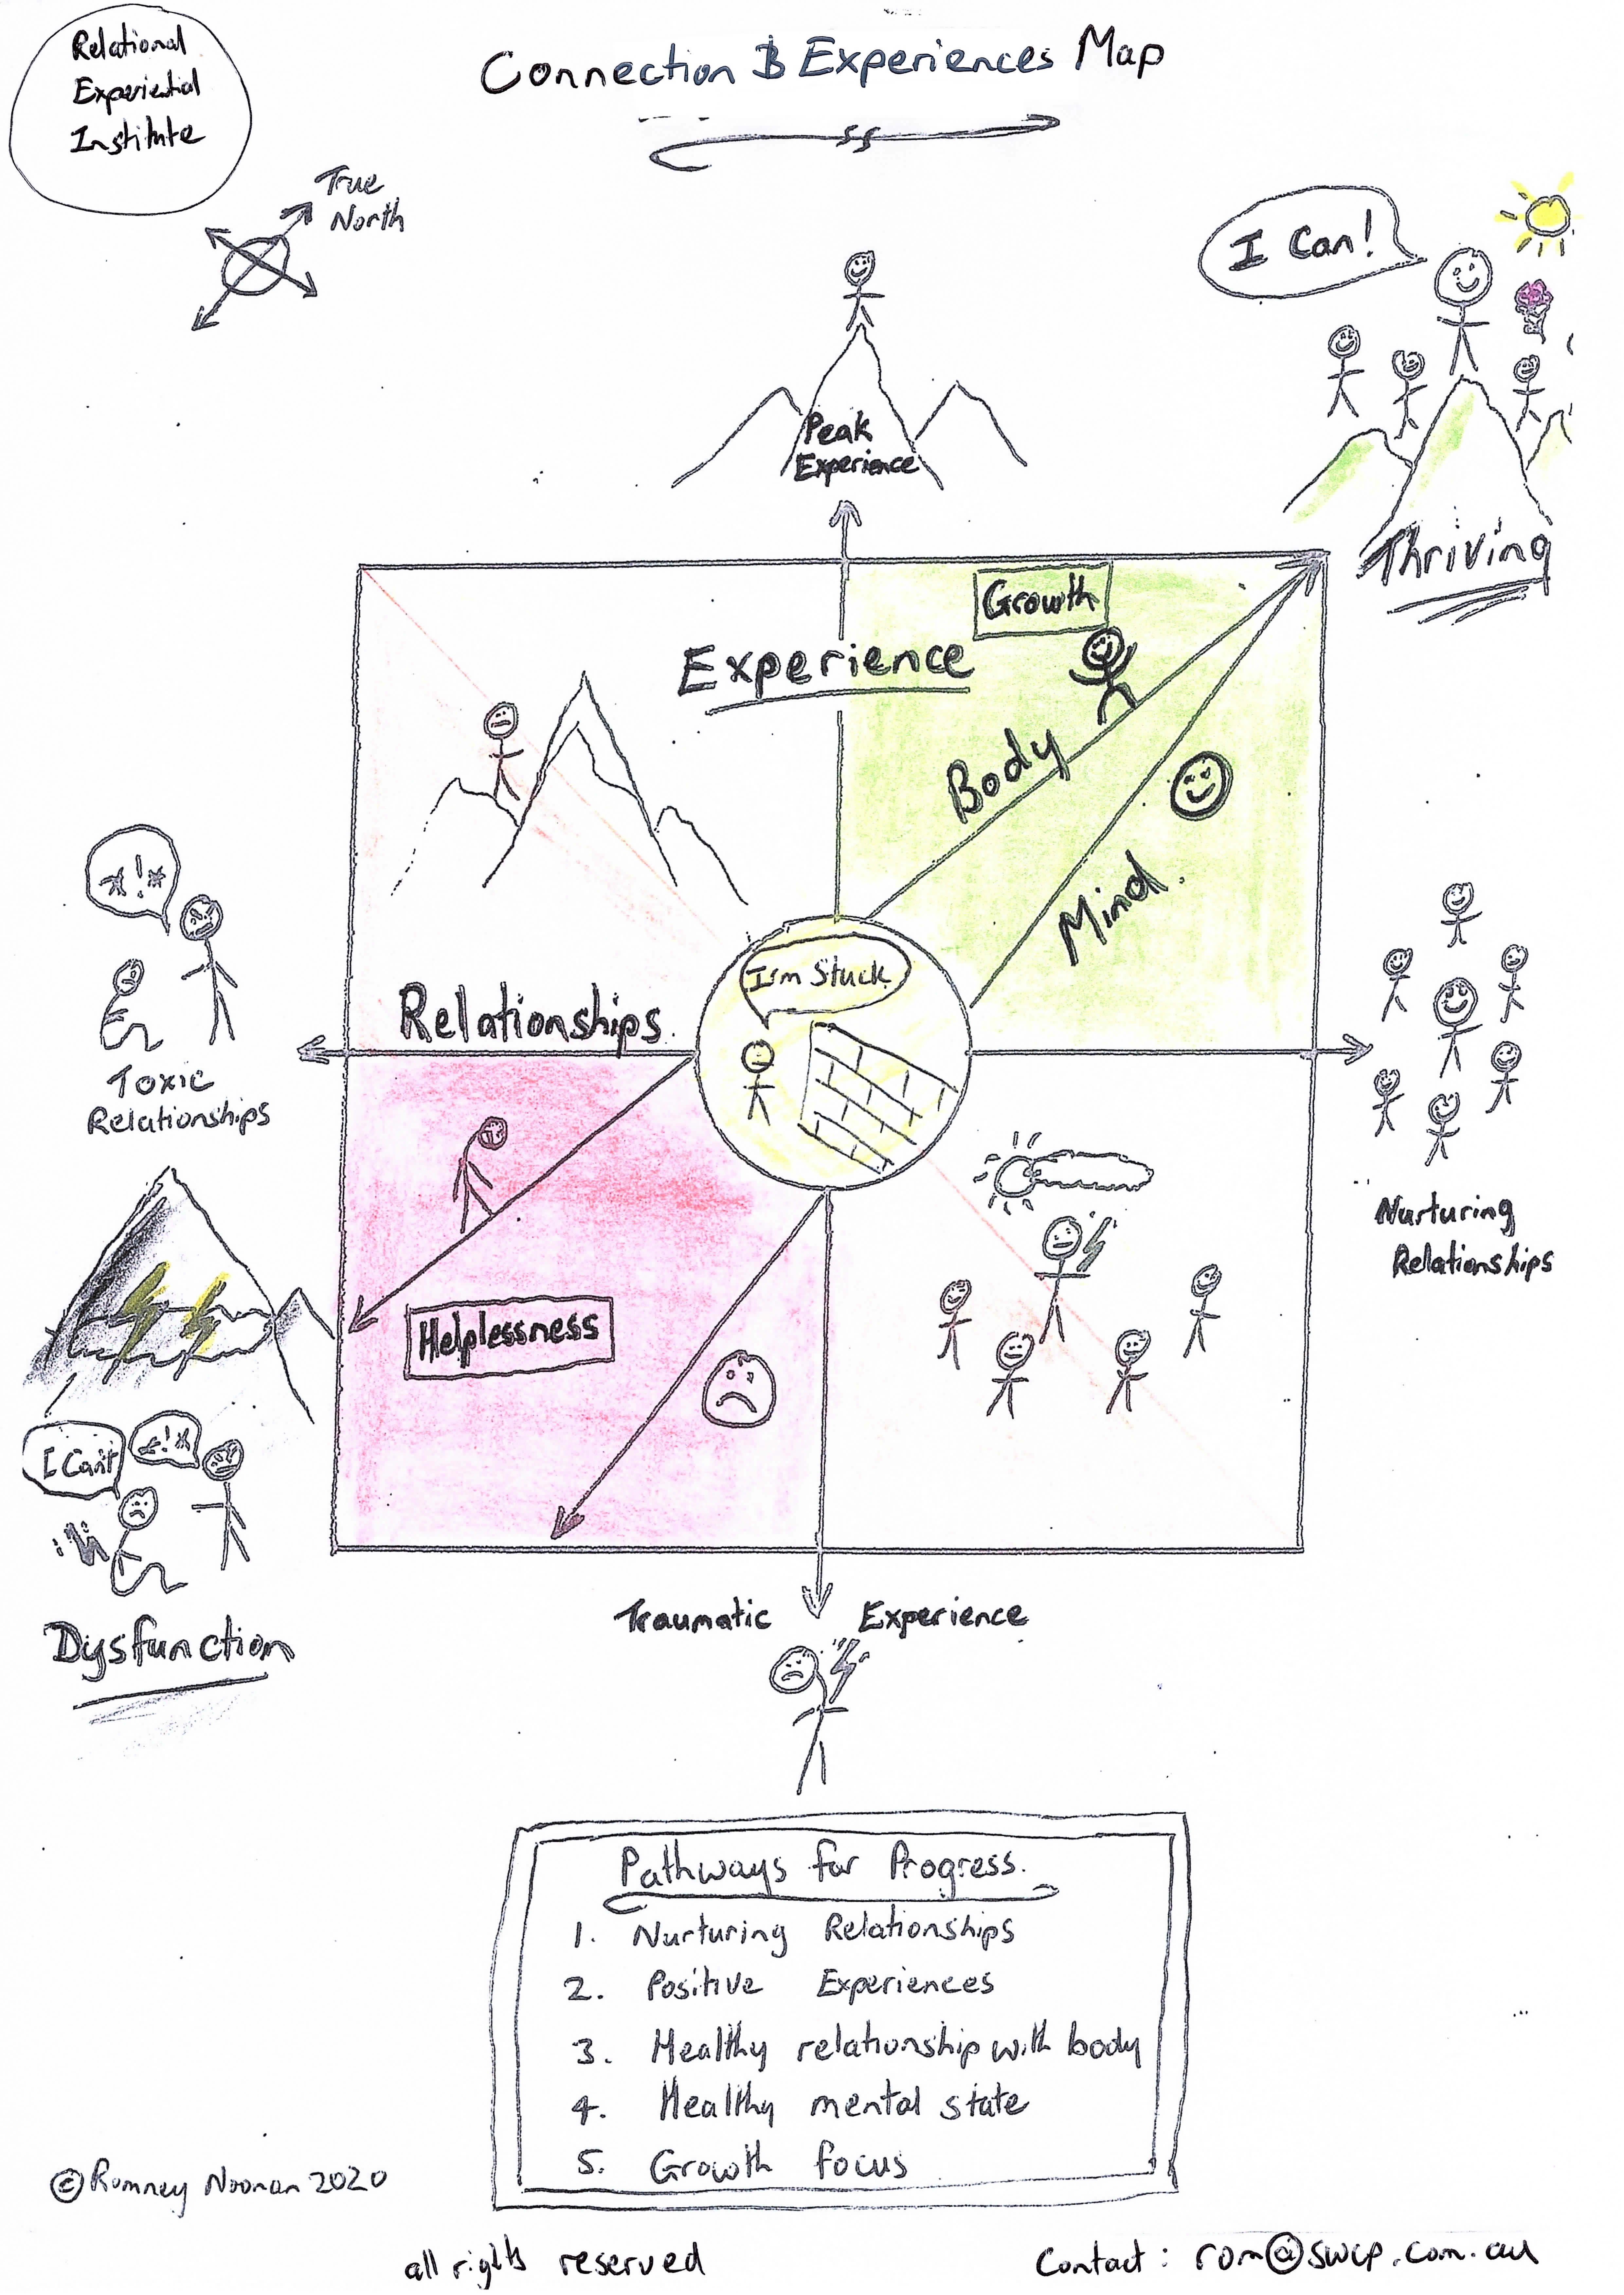 Relational
Experiential
Institute
Connection & Experiences Map
True
North
I Can!
Peak
Experience
Thriving
Growth
Experience
Body
Mind.
*!*
I'm Stuck
Relationships.
Toxic
Relationships
Nurturing
Relationships
Helplessness
I Can't
*!*
Dysfunction
Traumatic Experience
Pathways for Progress.
1. Nurturing Relationships
2. Positive Experiences
3. Healthy relationship with body
4. Healthy mental state
5. Growth focus
©Romney Noonan 2020
all rights reserved
Contact: rom@swcp.com.au